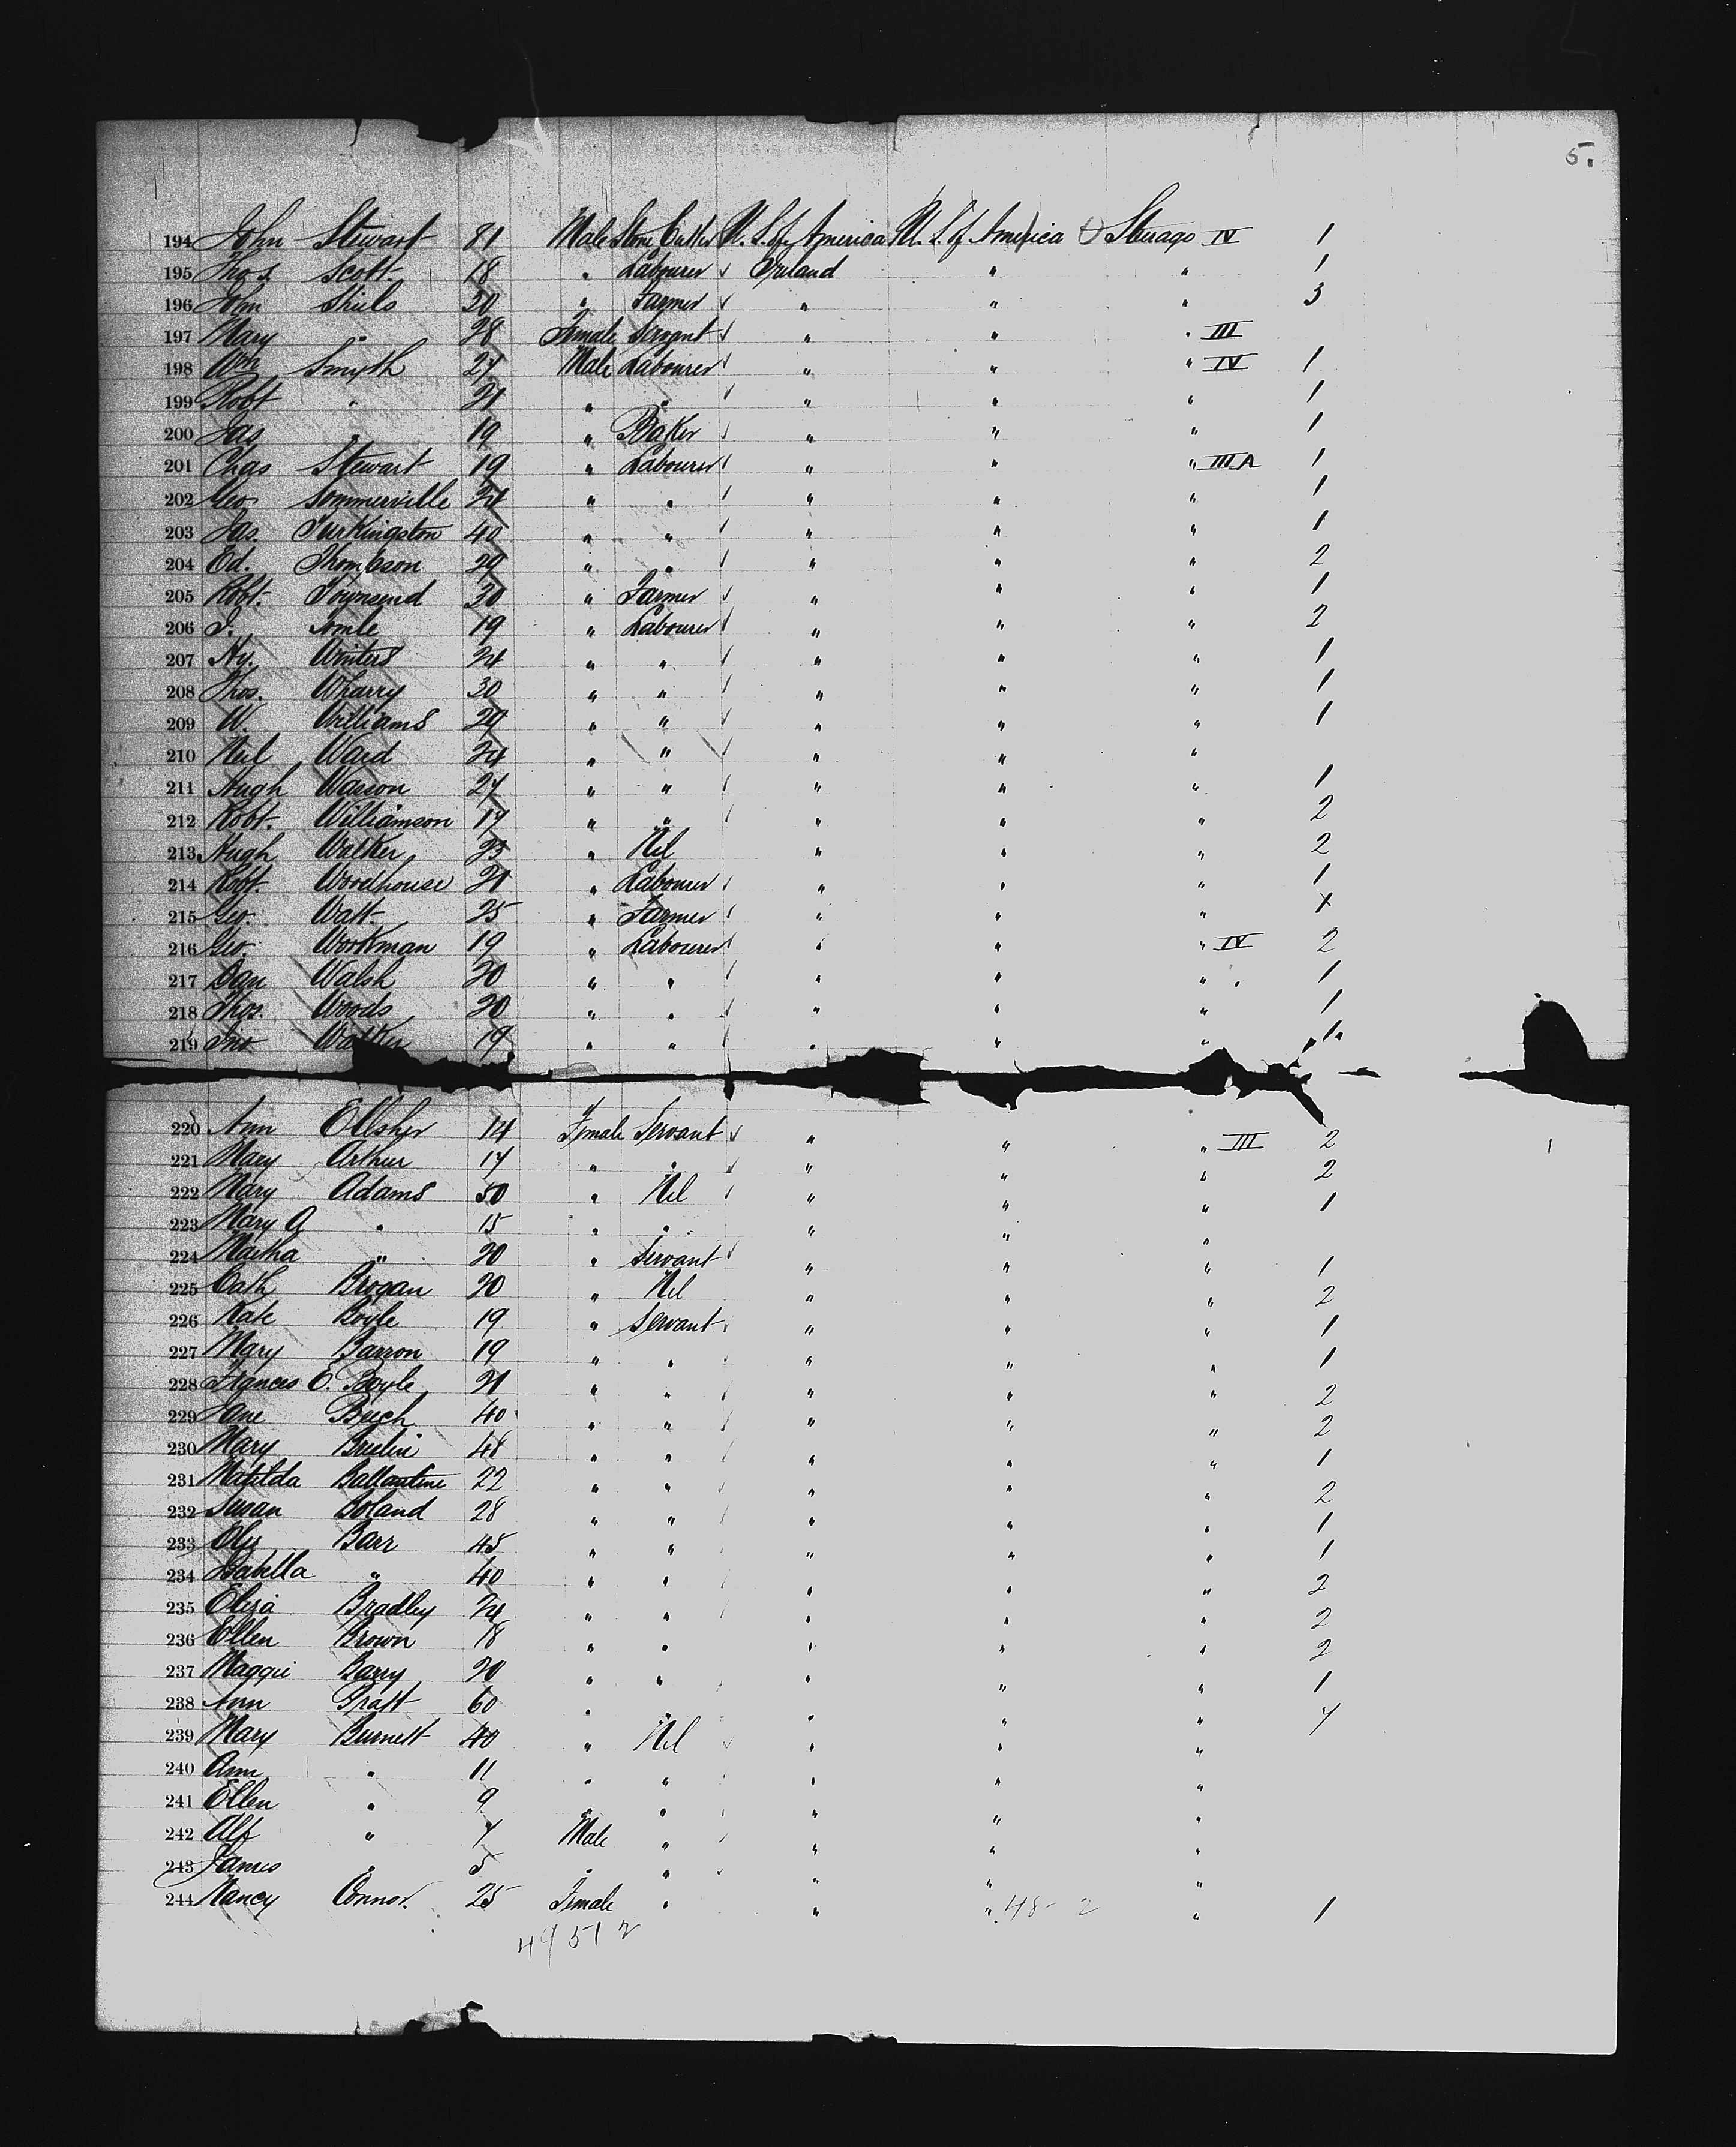 5.
194 John Stewart 81 Male Stone Cutter U. S. of America U. S. of America Steerage IV 1
195 Thos Scott 18 " Labourer Ireland " " 1
196 John Shiels 30 " Farmer " " " 3
197 Mary " 28 Female Servant " " " III
198 Wm Smyth 27 Male Labourer " " " IV 1
199 Robt " 21 " " " " " 1
200 Jas " 19 " Baker " " " 1
201 Chas Stewart 19 " Labourer " " " III A 1
202 Geo Sommerville 24 " " " " " 1
203 Jas. Turkingston 40 " " " " " 1
204 Ed. Thompson 29 " " " " " 2
205 Robt. Townsend 30 " Farmer " " " 1
206 19 " Labourer " " " 2
207 Hy. Winters 24 " " " " " 1
208 Thos. Wharry 30 " " " " " 1
209 W. Williams 29 " " " " " 1
210 Neil Ward 24 " " " " "
211 Hugh Wasson 27 " " " " " 1
212 Robt. Williamson 17 " " " " " 2
213 Hugh Walker 23 " Nil " " " 2
214 Robt. Woodhouse 21 " Labourer " " " 1
215 Geo. Watt 25 " Farmer " " "
216 Geo. Workman 19 " Labourer " " " IV 2
217 Dan Walsh 20 " " " " " " 1
218 Thos. Woods 20 " " " " " 1
219 Jno Walker 19 " " " " " 1
220 Ann 14 Female Servant " " " III 2
221 Mary Arthur 17 " " " " " 2
222 Mary Adams 50 " Nil " " " 1
223 Mary A " 15 " " " " "
224 Martha " 20 " Servant " " " 1
225 Cath Brogan 20 " Nil " " " 2
226 Kate Boyle 19 " Servant " " " 1
227 Mary Barron 19 " " " " " 1
228 Frances E. Boyle 21 " " " " " 2
229 Jane Beech 40 " " " " " 2
230 Mary Breslin 48 " " " " " 1
231 Matilda Ballantine 22 " " " " " 2
232 Susan Boland 28 " " " " " 1
233 Barr 45 " " " " " 1
234 Isabella " 40 " " " " " 2
235 Eliza Bradley 24 " " " " " 2
236 Ellen Brown 18 " " " " " 2
237 Maggie Barry 20 " " " " " 1
238 Ann 60 " " " " 7
239 Mary Burnett 40 " Nil " " "
240 Ann " 11 " " " " "
241 Ellen " 9 " " " " "
242 Alf " 7 Male " " " "
243 James " 5 " " " " "
244 Nancy Connor. 25 Female " " " 48 - 2 " 1
49 51 2